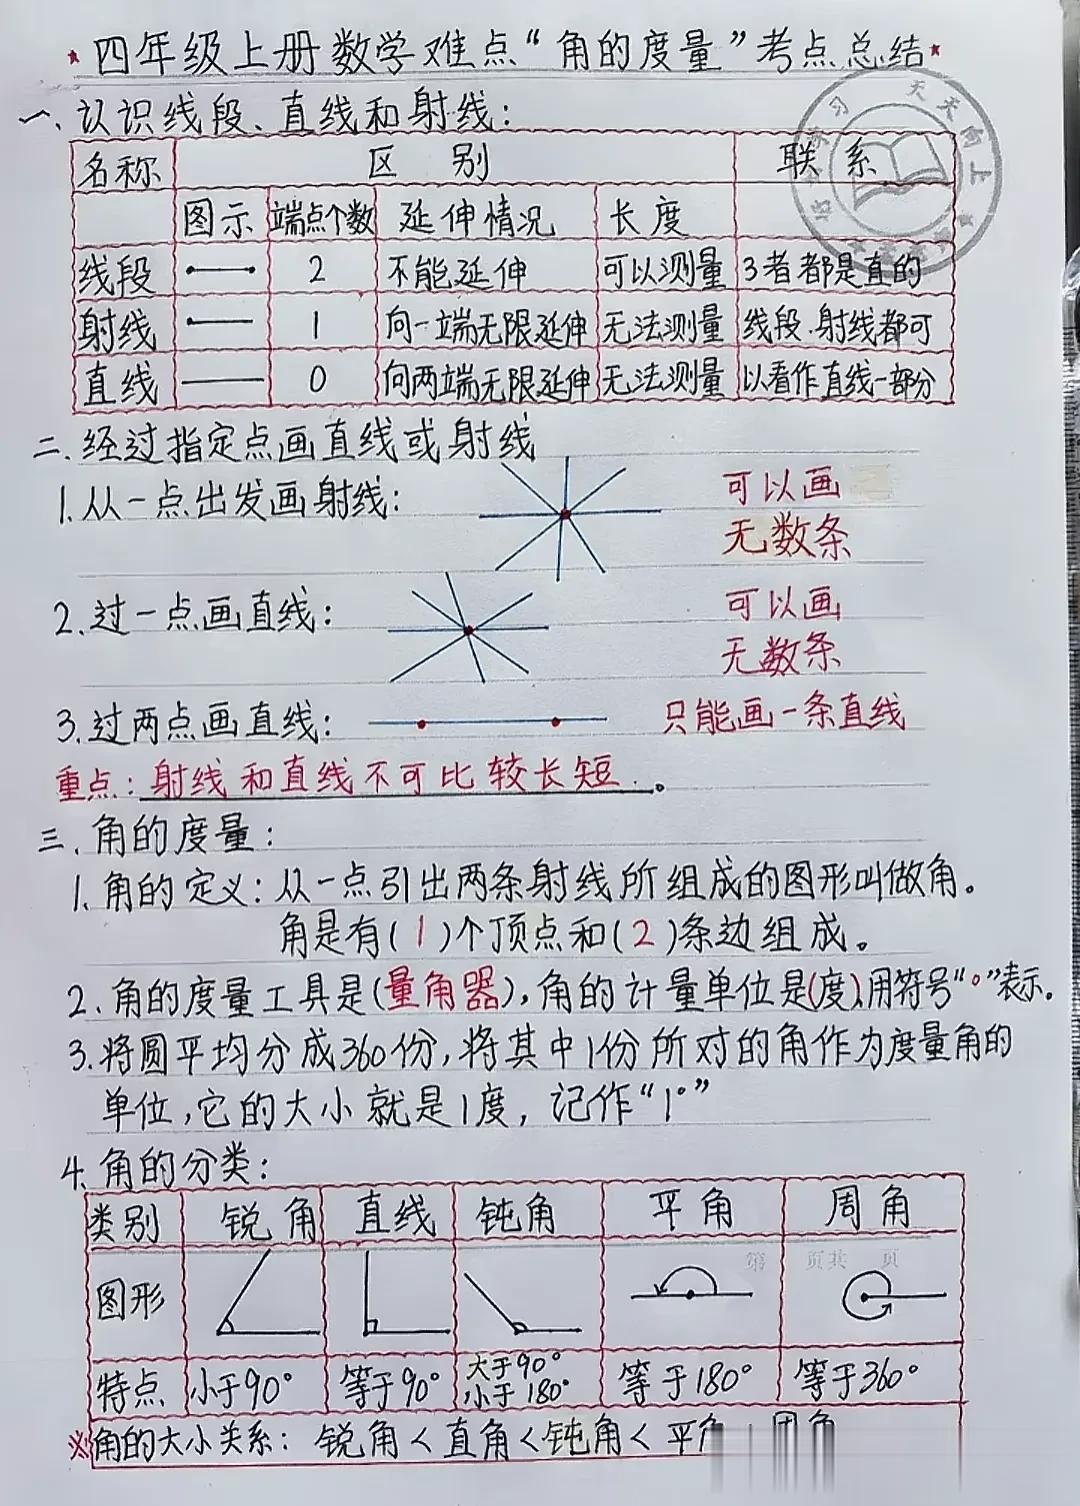 四年级上册数学难点“角的度量”考点总结
一、认识线段、直线和射线：
名称 区别 联系
图示 端点个数 延伸情况 长度
线段 2 不能延伸 可以测量 3者都是直的
射线 1 向一端无限延伸 无法测量 线段、射线都可
直线 0 向两端无限延伸 无法测量 以看作直线一部分
二、经过指定点画直线或射线
1.从一点出发画射线： 可以画
无数条
2.过一点画直线： 可以画
无数条
3.过两点画直线： 只能画一条直线
重点：射线和直线不可比较长短。
三、角的度量：
1.角的定义：从一点引出两条射线所组成的图形叫做角。
角是有(1)个顶点和(2)条边组成。
2.角的度量工具是(量角器),角的计量单位是(度),用符号“°”表示。
3.将圆平均分成360份,将其中1份所对的角作为度量角的
单位,它的大小就是1度，记作“1°”
4.角的分类：
类别 锐角 直线 钝角 平角 周角
第 页共 页
图形
特点 小于90° 等于90° 大于90° 小于180° 等于180° 等于360°
※角的大小关系：锐角<直角<钝角<平角
天天向上
学习